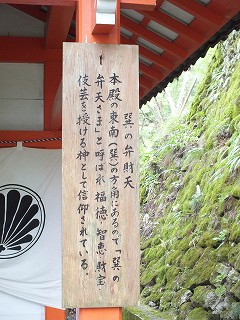 巽の弁財天
本殿の東南(巽)の方角にあるので「巽の
弁天さま」と呼ばれ 福徳 智恵 財宝
伎芸を授ける神として信仰されている。